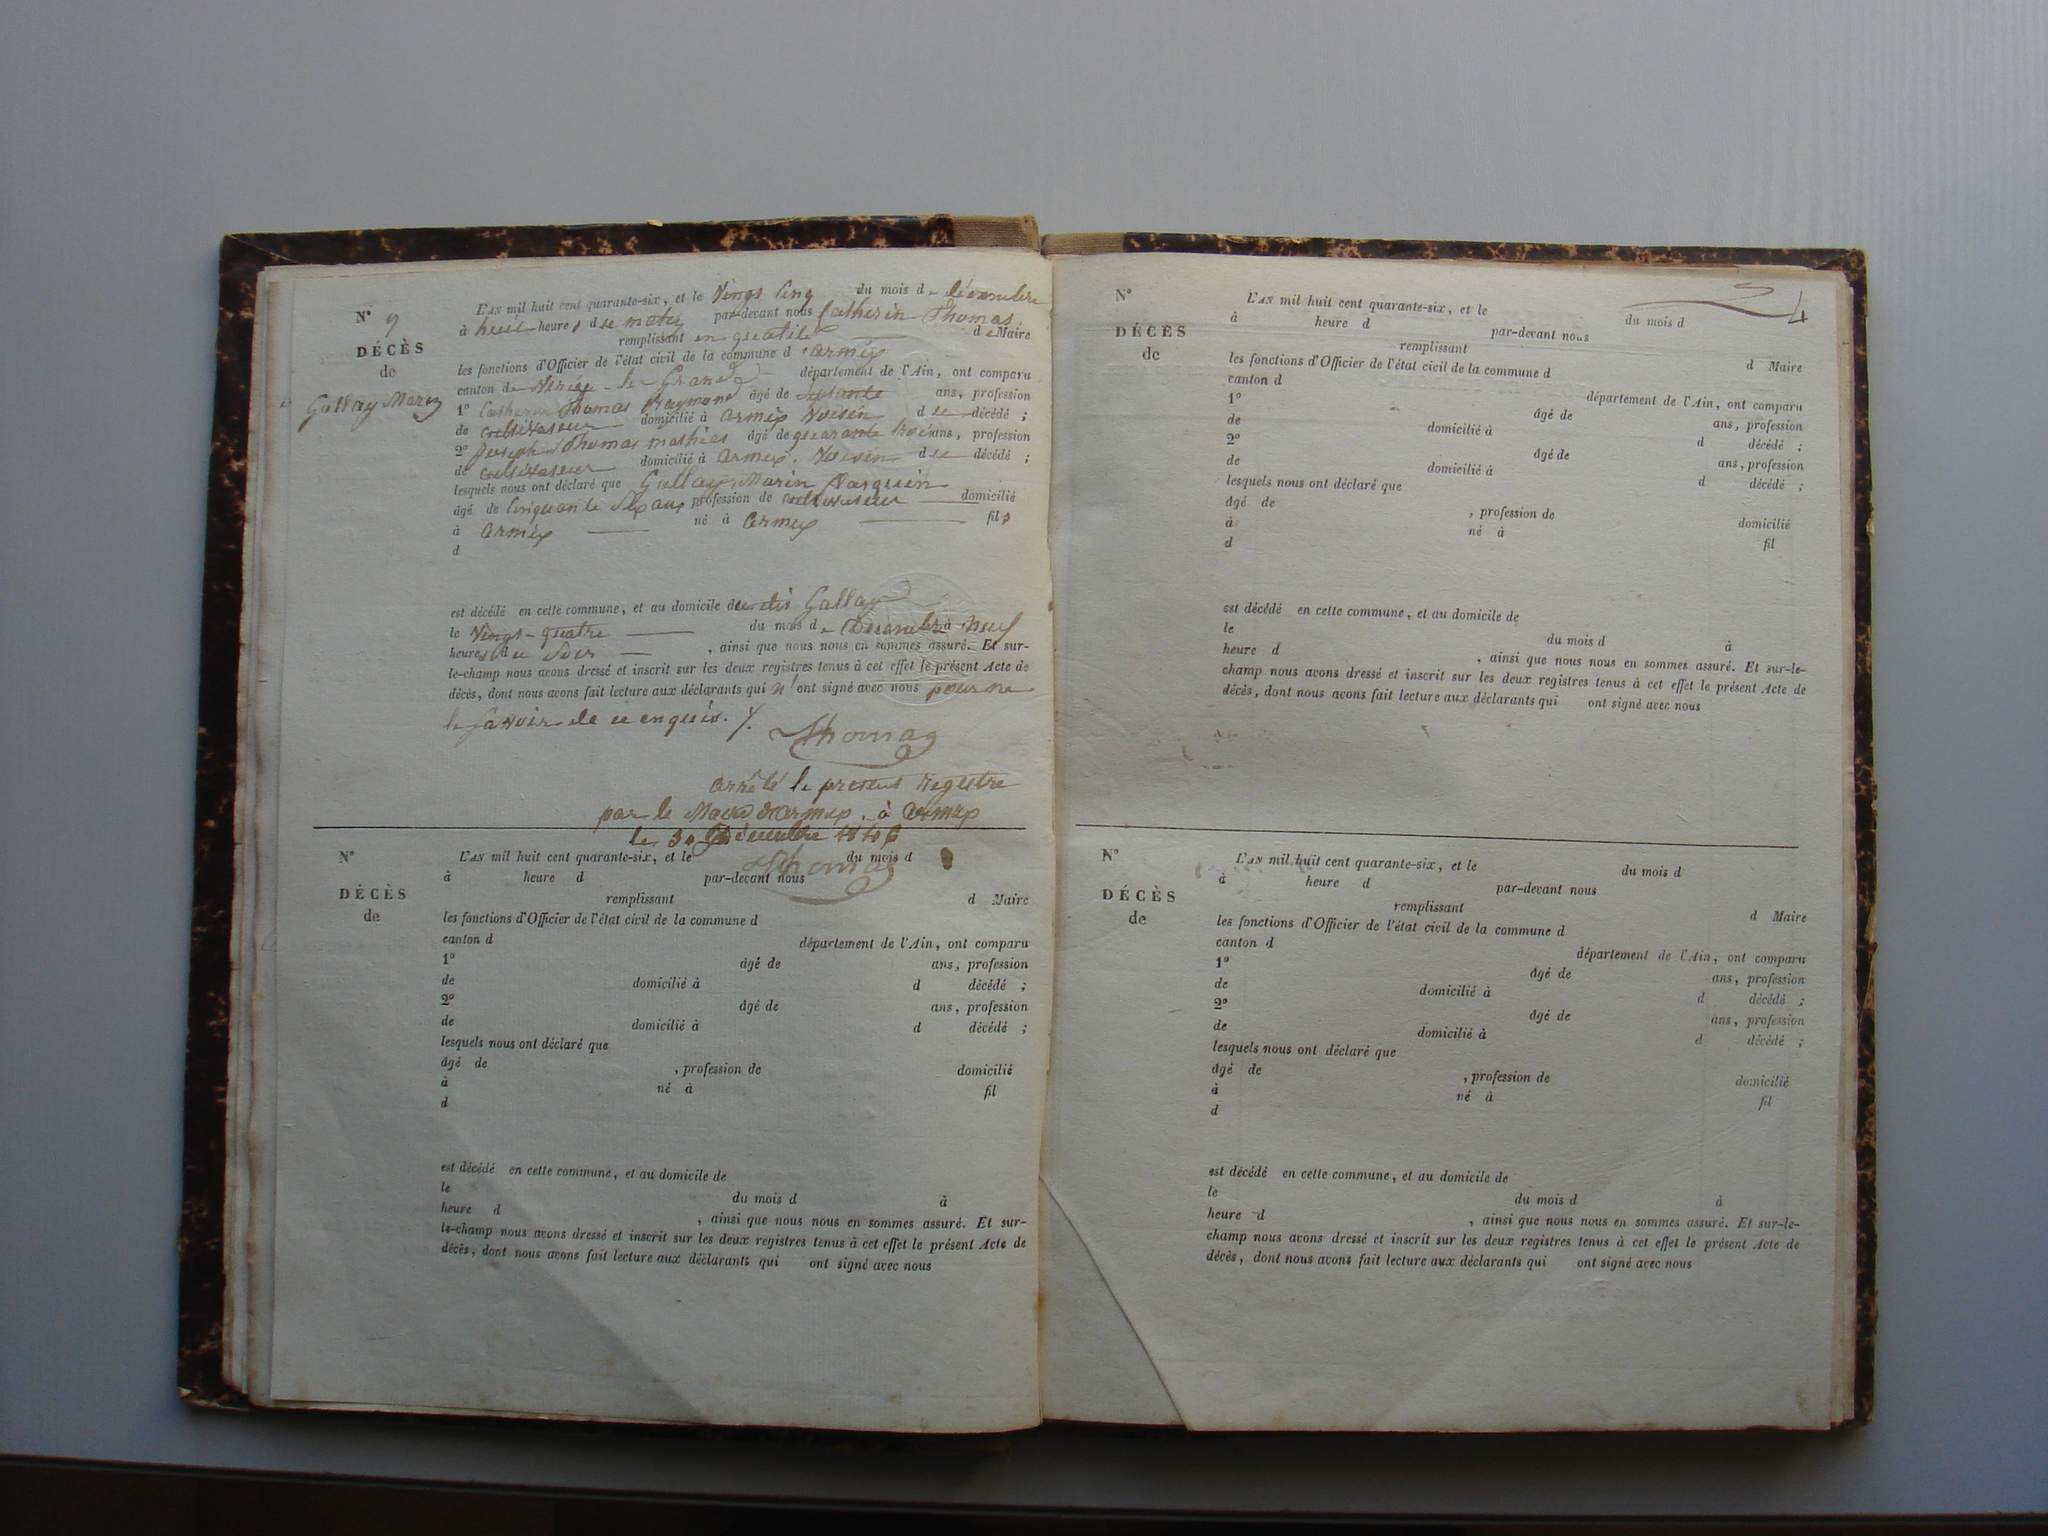 N° 9
DÉCÈS
de
Gallay Marin
L'AN mil huit cent quarante-six, et le vingt cinq du mois de décembre
à huit heures du matin par-devant nous Catherin Thomas
remplissant en qualité de Maire
les fonctions d'Officier de l'état civil de la commune d'armix
canton de Virieu-le-Grand département de l'Ain, ont comparu
1° Catherin Thomas Raymond âgé de septante ans, profession
de cultivateur domicilié à armix voisin du décédé ;
2° Joseph Thomas mathias âgé de quarante trois ans, profession
de cultivateur domicilié à armix, voisin du décédé ;
lesquels nous ont déclaré que Gallay Marin
âgé de Cinquante six ans profession de cultivateur domicilié
à armix né à armix fils
d
est décédé en cette commune, et au domicile du dis Gallay
le vingt-quatre du mois de Décembre à neuf
heures du soir, ainsi que nous nous en sommes assuré. Et sur-
le-champ nous avons dressé et inscrit sur les deux registres tenus à cet effet le présent Acte de
décès, dont nous avons fait lecture aux déclarants qui n'ont signé avec nous pour ne
le savoir de ce enquis. /.
Thomas
arrêté le present Registre
par le Maire d'armix, à armix
le 30 Décembre 1846
Thomas
N°
DÉCÈS
de
L'AN mil huit cent quarante-six, et le du mois d
à heure d par-devant nous
remplissant d Maire
les fonctions d'Officier de l'état civil de la commune d
canton d département de l'Ain, ont comparu
1° âgé de ans, profession
de domicilié à d décédé ;
2° âgé de ans, profession
de domicilié à d décédé ;
lesquels nous ont déclaré que
âgé de , profession de domicilié
à né à fil
d
est décédé en cette commune, et au domicile de
le du mois d à
heure d , ainsi que nous nous en sommes assuré. Et sur-
le-champ nous avons dressé et inscrit sur les deux registres tenus à cet effet le présent Acte de
décès, dont nous avons fait lecture aux déclarants qui ont signé avec nous
4
N°
DÉCÈS
de
L'AN mil huit cent quarante-six, et le du mois d
à heure d par-devant nous
remplissant d Maire
les fonctions d'Officier de l'état civil de la commune d
canton d département de l'Ain, ont comparu
1° âgé de ans, profession
de domicilié à d décédé ;
2° âgé de ans, profession
de domicilié à d décédé ;
lesquels nous ont déclaré que
âgé de , profession de domicilié
à né à fil
d
est décédé en cette commune, et au domicile de
le du mois d à
heure d , ainsi que nous nous en sommes assuré. Et sur-le-
champ nous avons dressé et inscrit sur les deux registres tenus à cet effet le présent Acte de
décès, dont nous avons fait lecture aux déclarants qui ont signé avec nous
N°
DÉCÈS
de
L'AN mil huit cent quarante-six, et le du mois d
à heure d par-devant nous
remplissant d Maire
les fonctions d'Officier de l'état civil de la commune d
canton d département de l'Ain, ont comparu
1° âgé de ans, profession
de domicilié à d décédé ;
2° âgé de ans, profession
de domicilié à d décédé ;
lesquels nous ont déclaré que
âgé de , profession de domicilié
à né à fil
d
est décédé en cette commune, et au domicile de
le du mois d à
heure d , ainsi que nous nous en sommes assuré. Et sur-le-
champ nous avons dressé et inscrit sur les deux registres tenus à cet effet le présent Acte de
décès, dont nous avons fait lecture aux déclarants qui ont signé avec nous